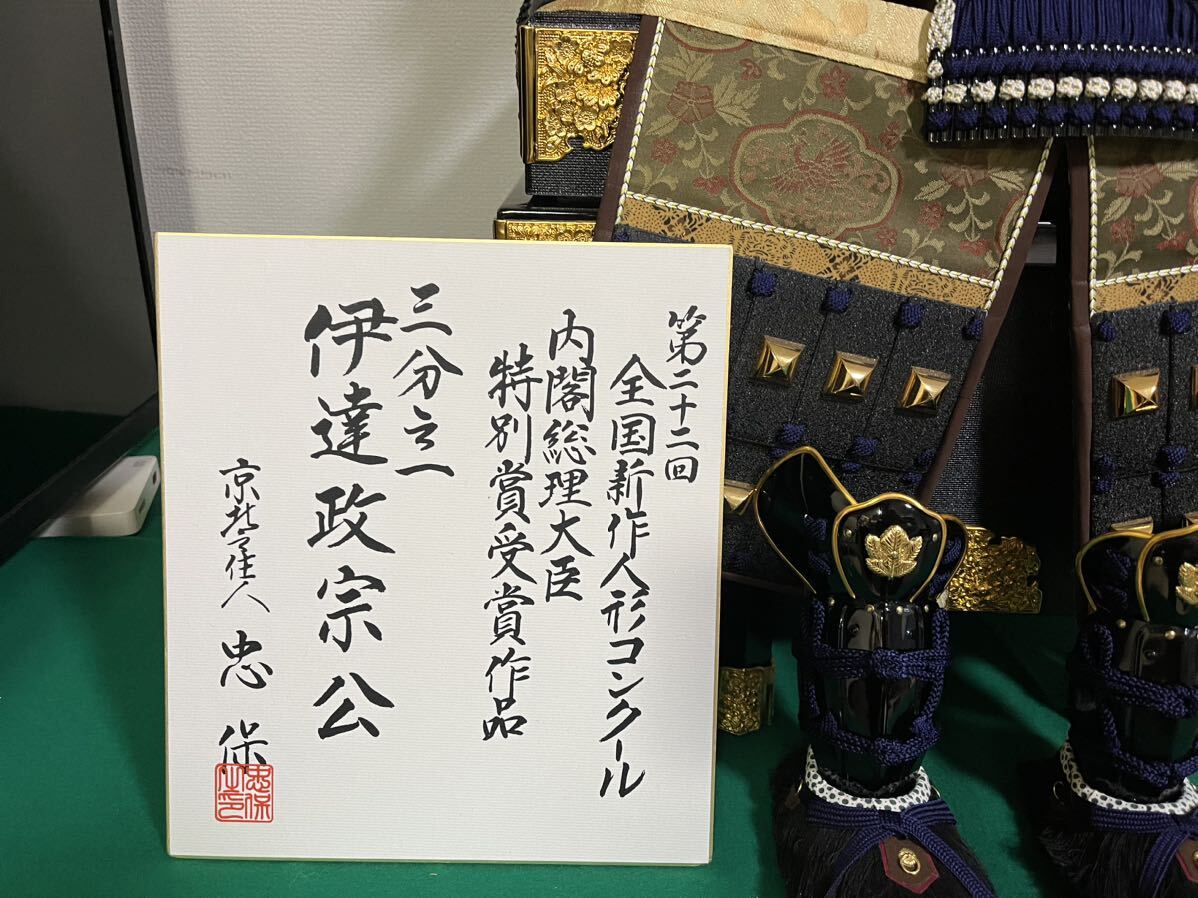 第二十二回
全国新作人形コンクール
内閣総理大臣
特別賞受賞作品
三分之一
伊達政宗公
京都住人 忠保
忠保之印